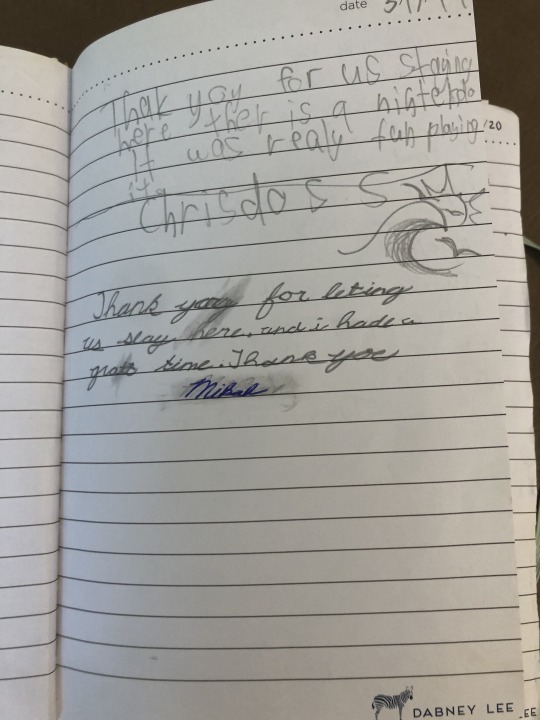 date
Thak yoy for us staying
here ther is a
It was realy fun playing
it
Chrisdos S M
/20
Thank you for leting
us stay here, and i had a
grate time. Thank you
DABNEY LEE
EE